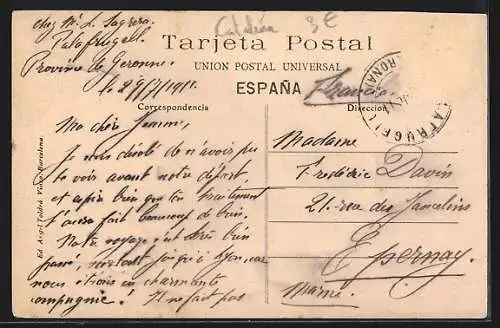 chez Mr L. Sagrera
Catalán 3€
Palafrugell.
Tarjeta Postal
Province de Geronne.
UNION POSTAL UNIVERSAL
le 29/7/1911.
ESPAÑA
(France)
Correspondencia
Direccion
PALAFRUGELL
Ma chère Jeanne,
Je suis désolé de n'avoir pu
te voir avant notre départ,
et espère bien que ton traitement
t'aura fait beaucoup de bien.
Notre voyage s'est très bien
passé, surtout jusqu'à Lyon, car
nous étions en charmante
compagnie! Il ne fait pas
Madame
Frédéric Davin
21 rue des Jancelins
Epernay.
Marne.
Ed. Angel Toldrá Viazo. Barcelona.